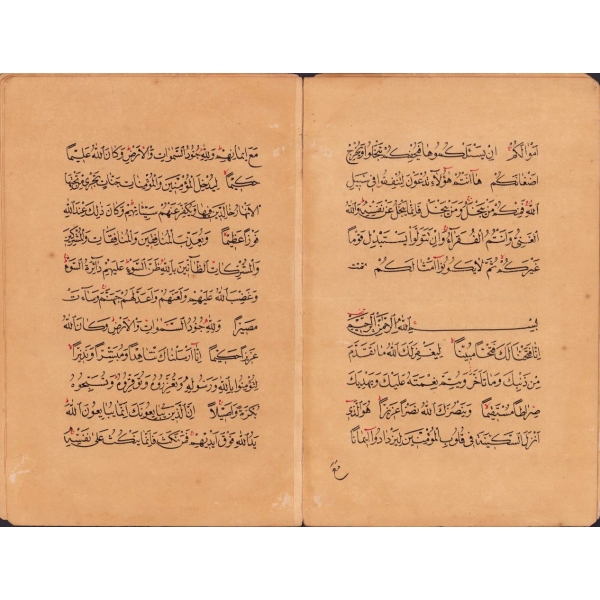 اَمْوَالَكُمْ اِنْ يَسْئَلْكُمُوهَا فَيُحْفِكُمْ تَبْخَلُوا وَيُخْرِجْ
اَضْغَانَكُمْ هَا اَنْتُمْ هٰؤُلَاءِ تُدْعَوْنَ لِتُنْفِقُوا فِي سَبِيلِ
اللّٰهِ فَمِنْكُمْ مَنْ يَبْخَلُ وَمَنْ يَبْخَلْ فَاِنَّمَا يَبْخَلُ عَنْ نَفْسِهِ وَاللّٰهُ
الْغَنِيُّ وَاَنْتُمُ الْفُقَرَاءُ وَاِنْ تَتَوَلَّوْا يَسْتَبْدِلْ قَوْمًا
غَيْرَكُمْ ثُمَّ لَا يَكُونُوا اَمْثَالَكُمْ
بِسْمِ اللّٰهِ الرَّحْمٰنِ الرَّحِيمِ
اِنَّا فَتَحْنَا لَكَ فَتْحًا مُبِينًا لِيَغْفِرَ لَكَ اللّٰهُ مَا تَقَدَّمَ
مِنْ ذَنْبِكَ وَمَا تَاَخَّرَ وَيُتِمَّ نِعْمَتَهُ عَلَيْكَ وَيَهْدِيَكَ
صِرَاطًا مُسْتَقِيمًا وَيَنْصُرَكَ اللّٰهُ نَصْرًا عَزِيزًا هُوَ الَّذِي
اَنْزَلَ السَّكِينَةَ فِي قُلُوبِ الْمُؤْمِنِينَ لِيَزْدَادُوا اِيمَانًا
مَعَ اِيمَانِهِمْ وَلِلّٰهِ جُنُودُ السَّمٰوَاتِ وَالْاَرْضِ وَكَانَ اللّٰهُ عَلِيمًا
حَكِيمًا لِيُدْخِلَ الْمُؤْمِنِينَ وَالْمُؤْمِنَاتِ جَنَّاتٍ تَجْرِي مِنْ تَحْتِهَا
الْاَنْهَارُ خَالِدِينَ فِيهَا وَيُكَفِّرَ عَنْهُمْ سَيِّئَاتِهِمْ وَكَانَ ذٰلِكَ عِنْدَ اللّٰهِ
فَوْزًا عَظِيمًا وَيُعَذِّبَ الْمُنَافِقِينَ وَالْمُنَافِقَاتِ وَالْمُشْرِكِينَ
وَالْمُشْرِكَاتِ الظَّانِّينَ بِاللّٰهِ ظَنَّ السَّوْءِ عَلَيْهِمْ دَائِرَةُ السَّوْءِ
وَغَضِبَ اللّٰهُ عَلَيْهِمْ وَلَعَنَهُمْ وَاَعَدَّ لَهُمْ جَهَنَّمَ وَسَاءَتْ
مَصِيرًا وَلِلّٰهِ جُنُودُ السَّمٰوَاتِ وَالْاَرْضِ وَكَانَ اللّٰهُ
عَزِيزًا حَكِيمًا اِنَّا اَرْسَلْنَاكَ شَاهِدًا وَمُبَشِّرًا وَنَذِيرًا
لِتُؤْمِنُوا بِاللّٰهِ وَرَسُولِهِ وَتُعَزِّرُوهُ وَتُوَقِّرُوهُ وَتُسَبِّحُوهُ
بُكْرَةً وَاَصِيلًا اِنَّ الَّذِينَ يُبَايِعُونَكَ اِنَّمَا يُبَايِعُونَ اللّٰهَ
يَدُ اللّٰهِ فَوْقَ اَيْدِيهِمْ فَمَنْ نَكَثَ فَاِنَّمَا يَنْكُثُ عَلٰى نَفْسِهِ